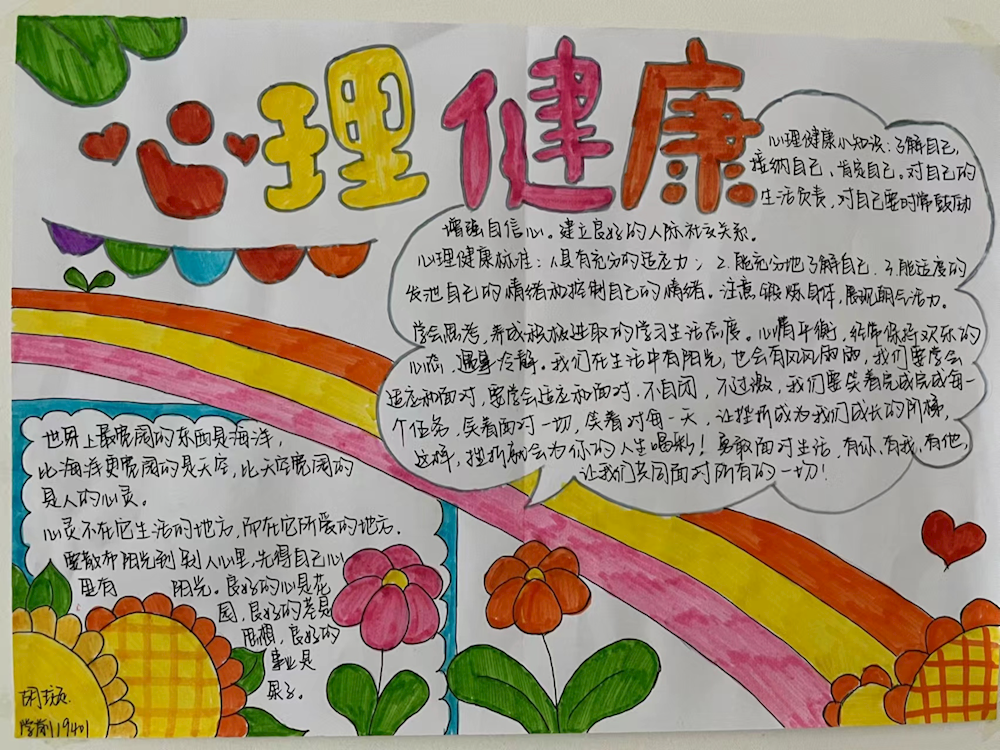 心理健康
心理健康小知识：了解自己，
接纳自己、肯定自己，对自己的
生活负责，对自己要时常鼓励
增强自信心。建立良好的人际社交关系。
心理健康标准：1具有充分的适应力；2.能充分地了解自己.3.能适度的
发泄自己的情绪和控制自己的情绪。注意锻炼身体，展现朝气活力。
学会思考，养成积极进取的学习生活态度。心情平衡，经常保持欢乐的
心态，遇事冷静。我们在生活中有阳光，也会有风风雨雨，我们要学会
适应和面对，要学会适应和面对.不自闭，不过激，我们要笑着完成完成每一
个任务，笑着面对一切，笑着对每一天，让挫折成为我们成长的阶梯，
这样，挫折就会为你的人生喝彩！勇敢面对生活，有你、有我、有他，
让我们共同面对所有的一切！
世界上最宽阔的东西是海洋，
比海洋更宽阔的是天空，比天空宽阔的
是人的心灵。
心灵不在它生活的地方，而在它所爱的地方.
要散布阳光到别人心里，先得自己心
里有 阳光。良好的心是花
园，良好的
思想，良好的
事业是
果子。
学前19401